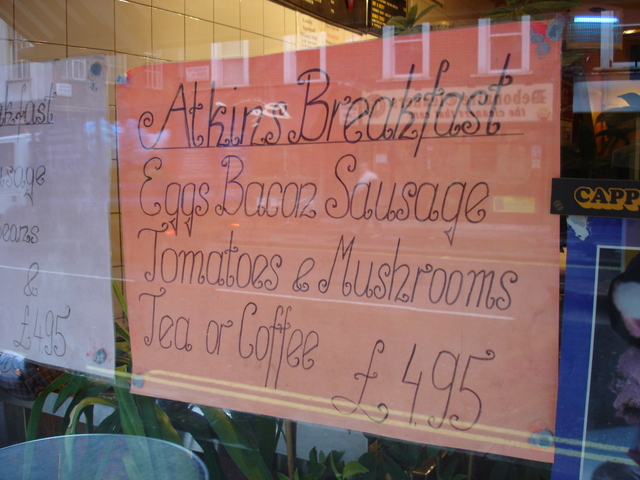 Atkins Breakfast
Eggs Bacon Sausage
Tomatoes & Mushrooms
Tea or Coffee £4.95
&
£4.95
CAPP